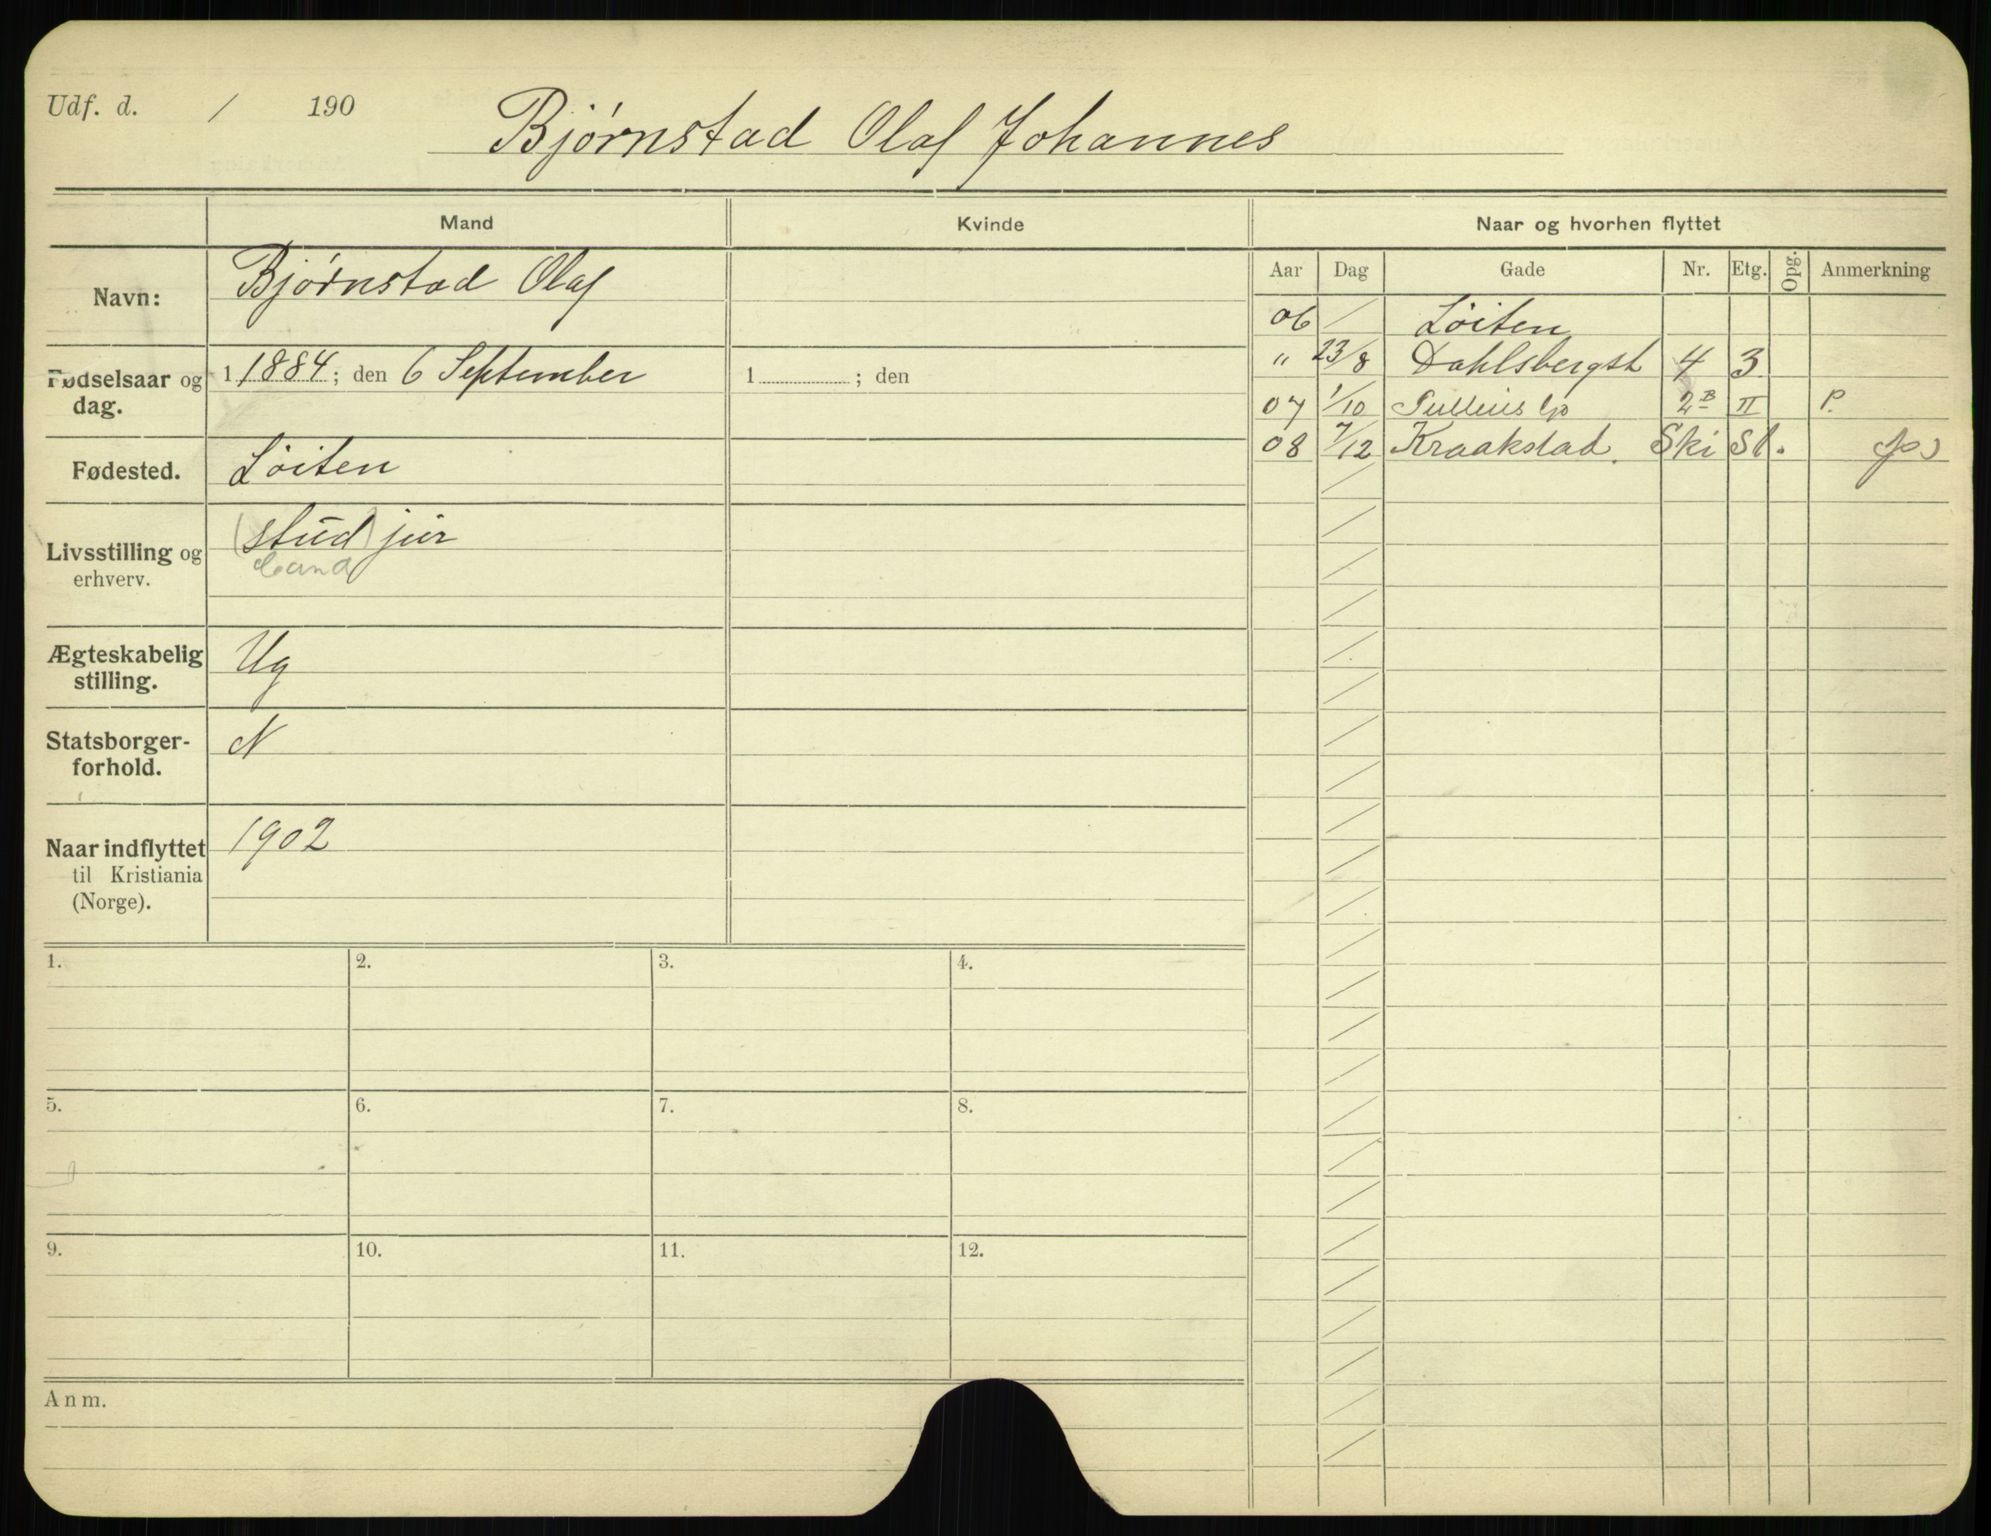 Udf. d. / 190
Bjørnstad Olaf Johannes
Mand
Kvinde
Naar og hvorhen flyttet
Aar Dag Gade Nr. Etg. Opg. Anmerkning
Navn: Bjørnstad Olaf
06 / Löiten
" 23/8 Dahlsbergst 4 3
Fødselsaar og dag. 1 1884; den 6 September 1 ; den
07 1/10 2B II P.
08 7/12 Kraakstad. Ski St.
Fødested. Löiten
Livsstilling og erhverv. (stud) jur
cand
Ægteskabelig stilling. Ug
Statsborger-forhold. N
Naar indflyttet til Kristiania (Norge). 1902
1. 2. 3. 4.
5. 6. 7. 8.
9. 10. 11. 12.
Anm.